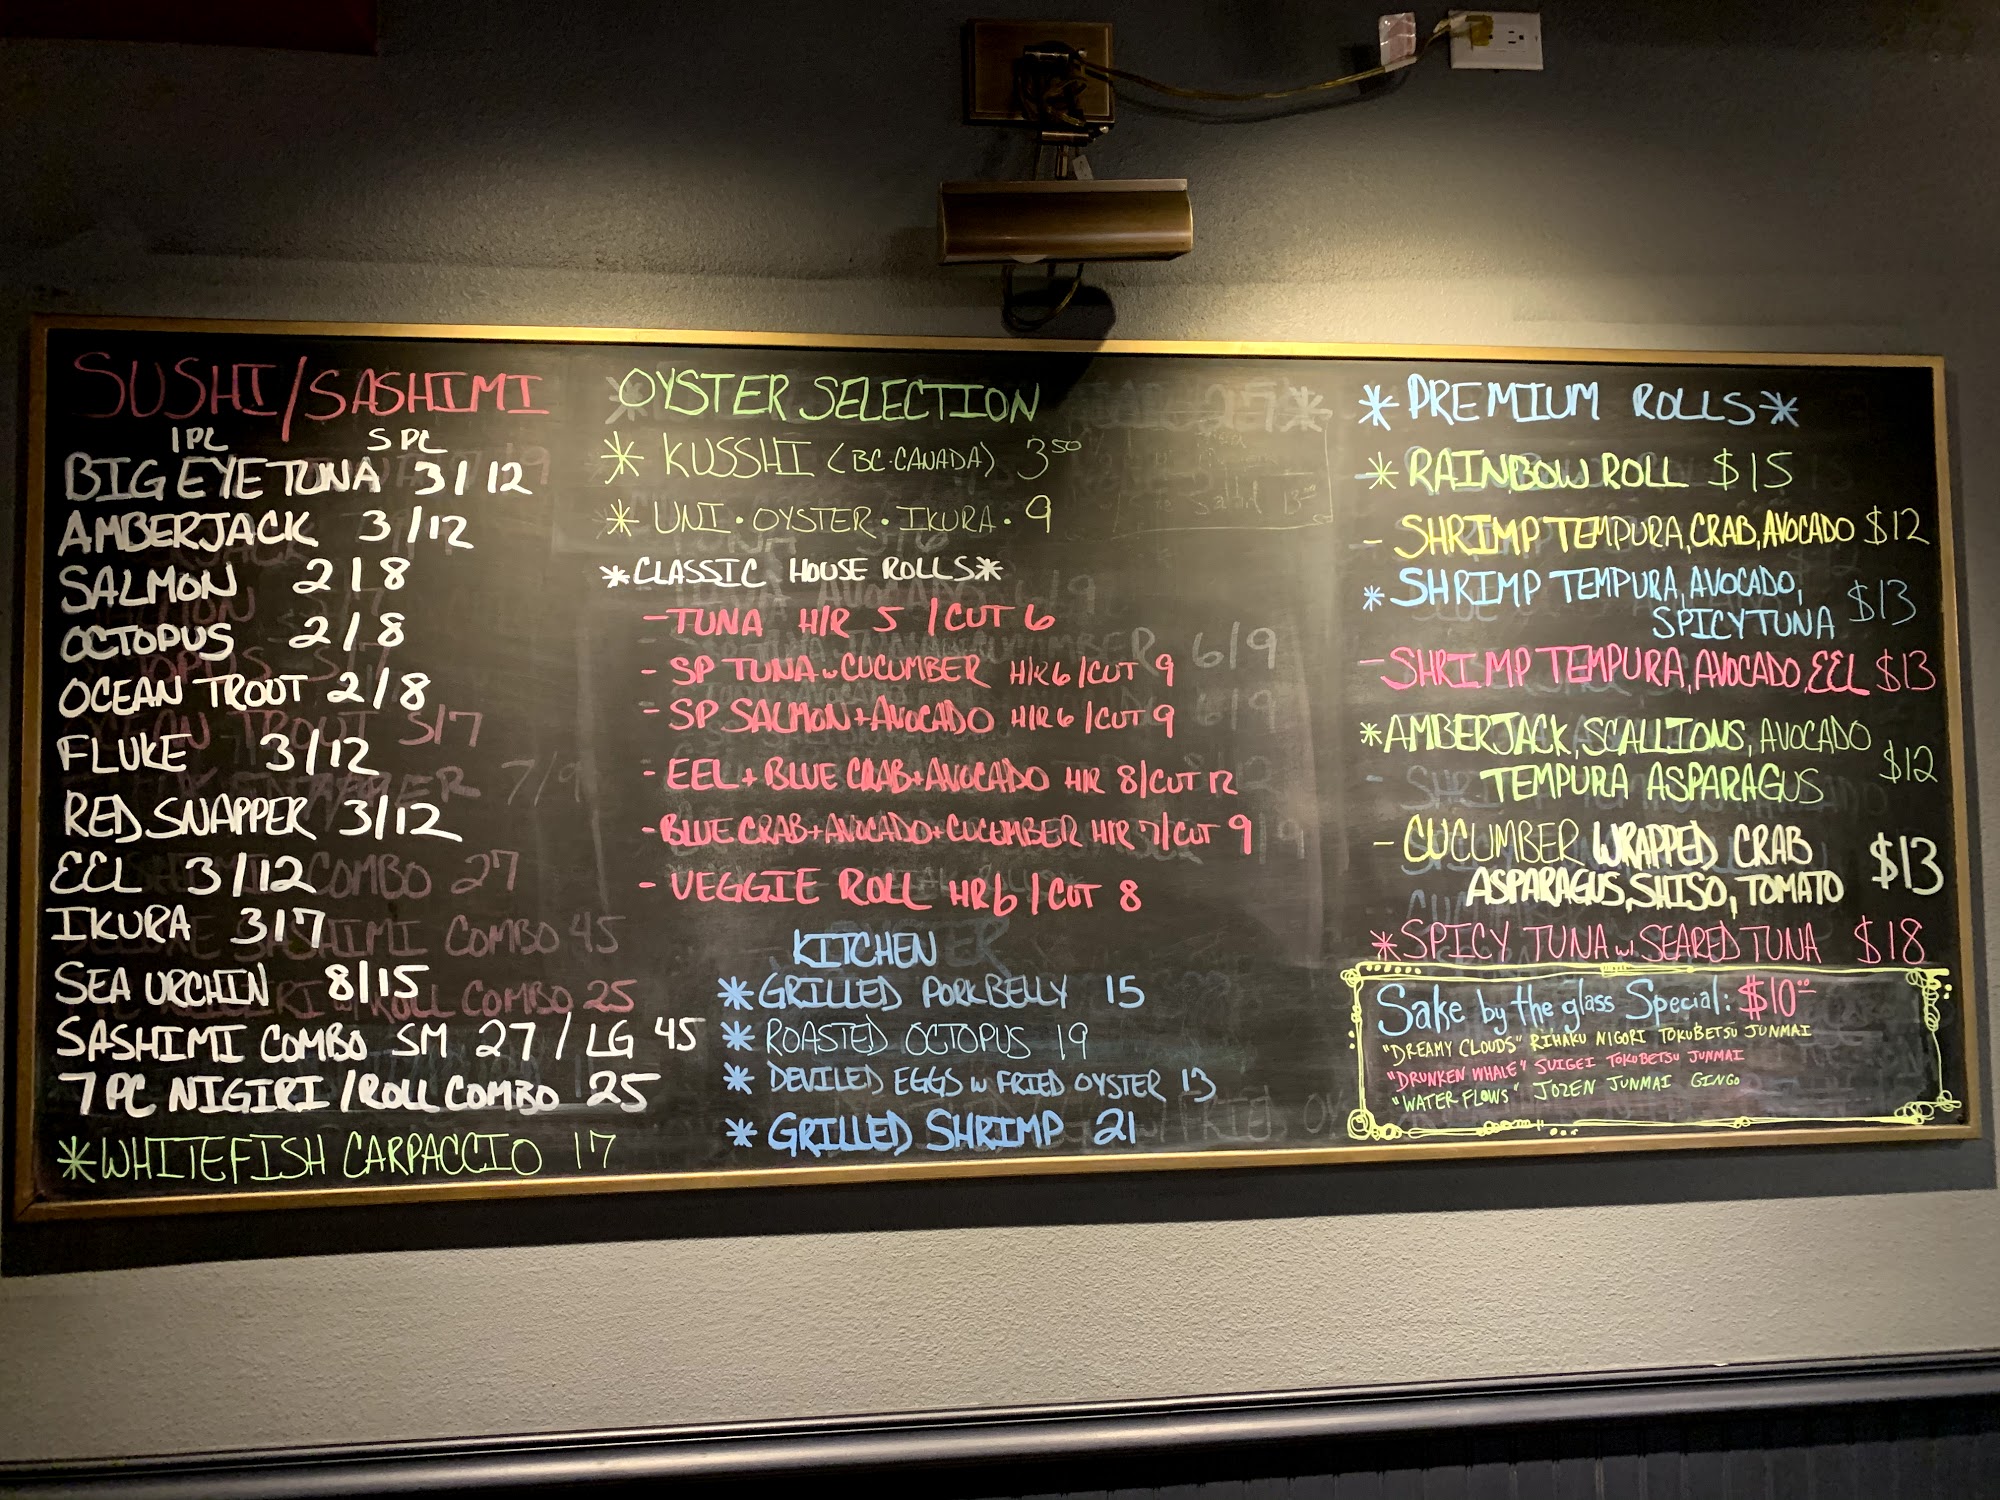 SUSHI/SASHIMI
1PC 5PC
BIG EYE TUNA 3/12
AMBERJACK 3/12
SALMON 2/8
OCTOPUS 2/8
OCEAN TROUT 2/8
FLUKE 3/12
RED SNAPPER 3/12
EEL 3/12
IKURA 3/7
SEA URCHIN 8/15
SASHIMI COMBO SM 27 / LG 45
7 PC NIGIRI /ROLL COMBO 25
*WHITEFISH CARPACCIO 17
OYSTER SELECTION
* KUSSHI (BC·CANADA) 3 50
* UNI · OYSTER · IKURA · 9
*CLASSIC HOUSE ROLLS*
- TUNA H/R 5 / CUT 6
- SP TUNA w CUCUMBER H/R 6 / CUT 9
- SP SALMON + AVOCADO H/R 6 / CUT 9
- EEL + BLUE CRAB + AVOCADO H/R 8/CUT 12
- BLUE CRAB + AVOCADO + CUCUMBER H/R 7/CUT 9
- VEGGIE ROLL HR 6 / CUT 8
KITCHEN
*GRILLED PORK BELLY 15
* ROASTED OCTOPUS 19
* DEVILED EGGS w FRIED OYSTER 13
* GRILLED SHRIMP 21
*PREMIUM ROLLS*
* RAINBOW ROLL $15
- SHRIMP TEMPURA, CRAB, AVOCADO $12
* SHRIMP TEMPURA, AVOCADO,
SPICY TUNA $13
- SHRIMP TEMPURA, AVOCADO, EEL $13
*AMBERJACK, SCALLIONS, AVOCADO
TEMPURA ASPARAGUS $12
- CUCUMBER WRAPPED CRAB
ASPARAGUS, SHISO, TOMATO $13
*SPICY TUNA w/ SEARED TUNA $18
Sake by the glass Special: $10
"DREAMY CLOUDS" RIHAKU NIGORI TOKUBETSU JUNMAI
"DRUNKEN WHALE" SUIGEI TOKUBETSU JUNMAI
"WATER FLOWS" JOZEN JUNMAI GINGO